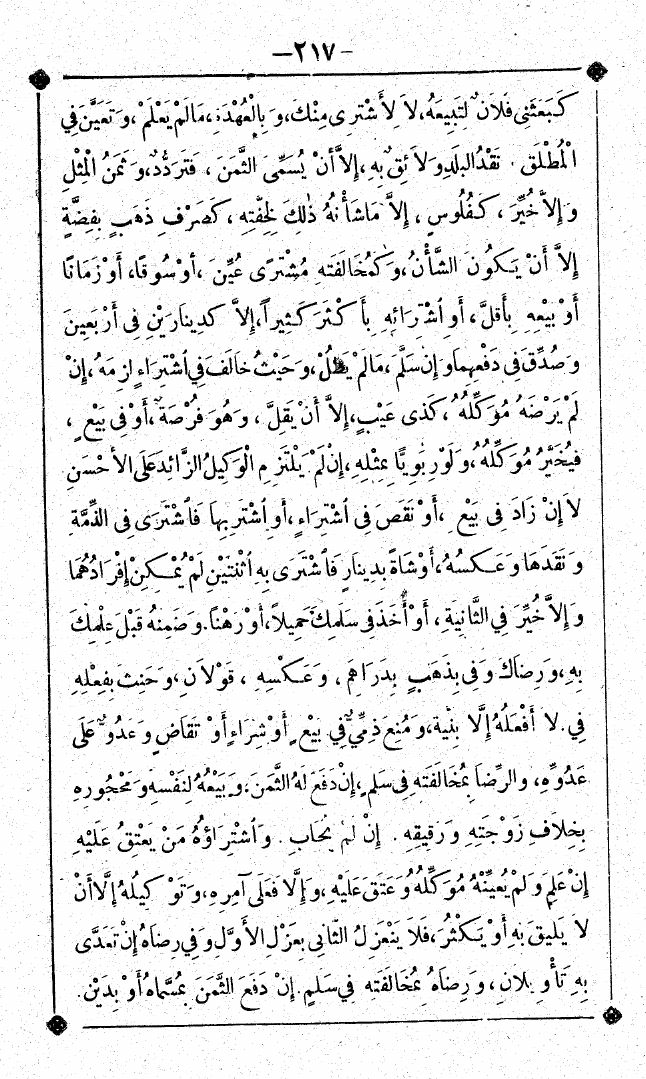 -٢١٧-
كَبَعَثَنِى فُلَانٌ لِتَبِيعَهُ، لَا لِأَشْتَرِى مِنْكَ، وَبِالْعُهْدَةِ، مَالَمْ يَعْلَمْ، وَتَعَيَّنَ فِي
الْمُطْلَقِ. نَقْدُ البَلَدِ وَلَائِقٌ بِهِ، إِلَّا أَنْ يُسَمِّىَ الثَّمَنَ، فَتَرَدُّدٌ، وَثَمَنُ الْمِثْلِ
وَإِلَّا خُيِّرَ، كَفُلُوسٍ، إِلَّا مَا شَأْنُهُ ذٰلِكَ لِخِفَّتِهِ، كَصَرْفِ ذَهَبٍ بِفِضَّةٍ
إِلَّا أَنْ يَكُونَ الشَّأْنُ، وَكَمُخَالَفَتِهِ مُشْتَرًى عُيِّنَ، أَوْ سُوقًا، أَوْ زَمَانًا
أَوْ بَيْعِهِ بِأَقَلَّ، أَوِ اشْتِرَائِهِ بِأَكْثَرَ كَثِيرًا، إِلَّا كَدِينَارَيْنِ فِى أَرْبَعِينَ
وَصُدِّقَ فِى دَفْعِهِمَا وَإِنْ سَلَّمَ، مَالَمْ يَطُلْ، وَحَيْثُ خَالَفَ فِي اشْتِرَاءٍ لَزِمَهُ، إِنْ
لَمْ يَرْضَهُ مُوَكِّلُهُ، كَذِى عَيْبٍ، إِلَّا أَنْ يَقِلَّ، وَهُوَ فُرْصَةٌ، أَوْ فِى بَيْعٍ،
فَيُخَيَّرُ مُوَكِّلُهُ، وَلَوْ رِبَوِيًّا بِمِثْلِهِ، إِنْ لَمْ يَلْتَزِمِ الْوَكِيلُ الزَّائِدَ عَلَى الأَحْسَنِ
لَا إِنْ زَادَ فِى بَيْعٍ، أَوْ نَقَصَ فِى اشْتِرَاءٍ، أَوِ اشْتَرِ بِهَا فَاشْتَرَى فِى الذِّمَّةِ
وَنَقَدَهَا وَعَكْسُهُ، أَوْ شَاةً بِدِينَارٍ فَاشْتَرَى بِهِ اثْنَتَيْنِ لَمْ يُمْكِنْ إِفْرَادُهُمَا
وَإِلَّا خُيِّرَ فِي الثَّانِيَةِ، أَوْ أَخَذَ فِى سَلَمِكَ حَمِيلًا، أَوْ رَهْنًا. وَضَمِنَهُ قَبْلَ عِلْمِكَ
بِهِ، وَرِضَاكَ وَفِى بِذَهَبٍ بِدَرَاهِمَ، وَعَكْسِهِ، قَوْلَانِ، وَحَنِثَ بِفِعْلِهِ
فِي. لَا أَفْعَلُهُ إِلَّا بِنِيَّةٍ، وَمُنِعَ ذِمِّيٌّ فِي بَيْعٍ أَوْ شِرَاءٍ أَوْ تَقَاضٍ وَعَدُوٌّ عَلَى
عَدُوِّهِ، وَالرِّضَا بِمُخَالَفَتِهِ فِى سَلَمٍ، إِنْ دَفَعَ لَهُ الثَّمَنَ، وَبَيْعُهُ لِنَفْسِهِ وَمَحْجُورِهِ
بِخِلَافِ زَوْجَتِهِ وَرَقِيقِهِ. إِنْ لَمْ يُحَابِ. وَاشْتِرَاؤُهُ مَنْ يَعْتِقُ عَلَيْهِ
إِنْ عَلِمَ وَلَمْ يُعَيِّنْهُ مُوَكِّلُهُ وَعَتَقَ عَلَيْهِ، وَإِلَّا فَعَلَى آمِرِهِ، وَتَوْكِيلُهُ إِلَّا أَنْ
لَا يَلِيقَ بِهِ أَوْ يَكْثُرَ، فَلَا يَنْعَزِلُ الثَّانِى بِعَزْلِ الأَوَّلِ وَفِي رِضَاهُ إِنْ تَعَدَّى
بِهِ تَأْوِيلَانِ، وَرِضَاهُ بِمُخَالَفَتِهِ فِي سَلَمٍ. إِنْ دَفَعَ الثَّمَنَ بِمُسَمَّاهُ أَوْ بِدَيْنٍ.